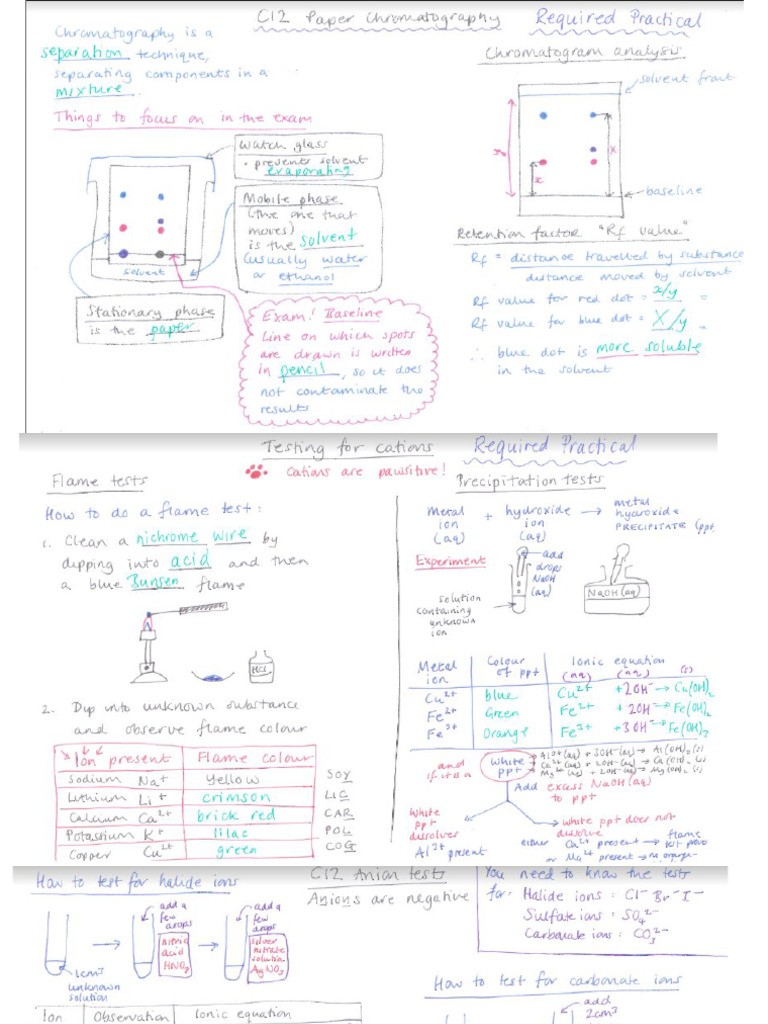 C12 Paper Chromatography Required Practical
Chromatography is a
separation technique,
separating components in a
mixture.
Things to focus on in the exam
Watch glass
• prevents solvent
evaporating
Mobile phase
(the one that
moves)
is the solvent
(usually water
or ethanol
solvent
Stationary phase
is the paper
Exam! Baseline
Line on which spots
are drawn is written
in pencil, so it does
not contaminate the
results
Chromatogram analysis
solvent front
y
x
x
baseline
Retention factor "Rf value"
Rf = distance travelled by substance
distance moved by solvent
Rf value for red dot = x/y =
Rf value for blue dot = X/y =
∴ blue dot is more soluble
in the solvent
Testing for cations Required Practical
Cations are pawsitive!
Flame tests
How to do a flame test:
1. Clean a nichrome wire by
dipping into acid and then
a blue Bunsen flame
HCl
2. Dip into unknown substance
and observe flame colour
Ion present Flame colour
Sodium Na+ yellow SOY
Lithium Li+ crimson LIC
Calcium Ca2+ brick red CAR
Potassium K+ lilac POL
Copper Cu2+ green COG
Precipitation tests
Metal ion (aq) + hydroxide ion (aq) → metal hydroxide PRECIPITATE (ppt
Experiment
add
drops
NaOH
(aq)
NaOH(aq)
solution
containing
unknown
ion
Metal ion Colour of ppt Ionic equation
(aq) (aq) (s)
Cu2+ blue Cu2+ +2OH- → Cu(OH)2
Fe2+ Green Fe2+ +2OH- → Fe(OH)2
Fe3+ Orange Fe3+ +3OH- → Fe(OH)3
and if it is a
White ppt
Al3+(aq) + 3OH-(aq) → Al(OH)3(s)
Ca2+(aq) + 2OH-(aq) → Ca(OH)2(s)
Mg2+(aq) + 2OH-(aq) → Mg(OH)2(s)
Add excess NaOH(aq)
to ppt
White
ppt
dissolves
Al3+ present
white ppt does not
dissolve
either Ca2+ present → flame
test
or Mg2+ present → no orange
How to test for halide ions
add a
few
drops
nitric
acid
HNO3
add a
few
drops
silver
nitrate
solution
AgNO3
1cm3
unknown
solution
Ion Observation Ionic equation
C12 Anion tests
Anions are negative
You need to know the tests
for: Halide ions: Cl- Br- I-
Sulfate ions: SO4 2-
Carbonate ions: CO3 2-
How to test for carbonate ions
add
2cm3